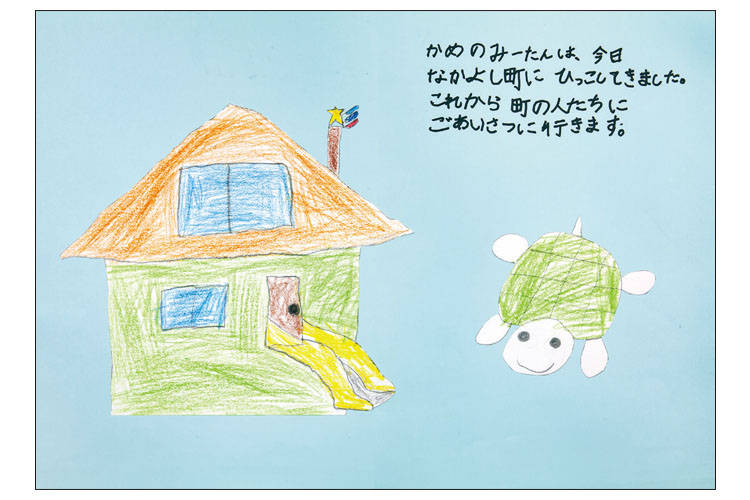 かめのみーたんは、今日
なかよし町に ひっこしてきました。
これから 町の人たちに
ごあいさつに行きます。